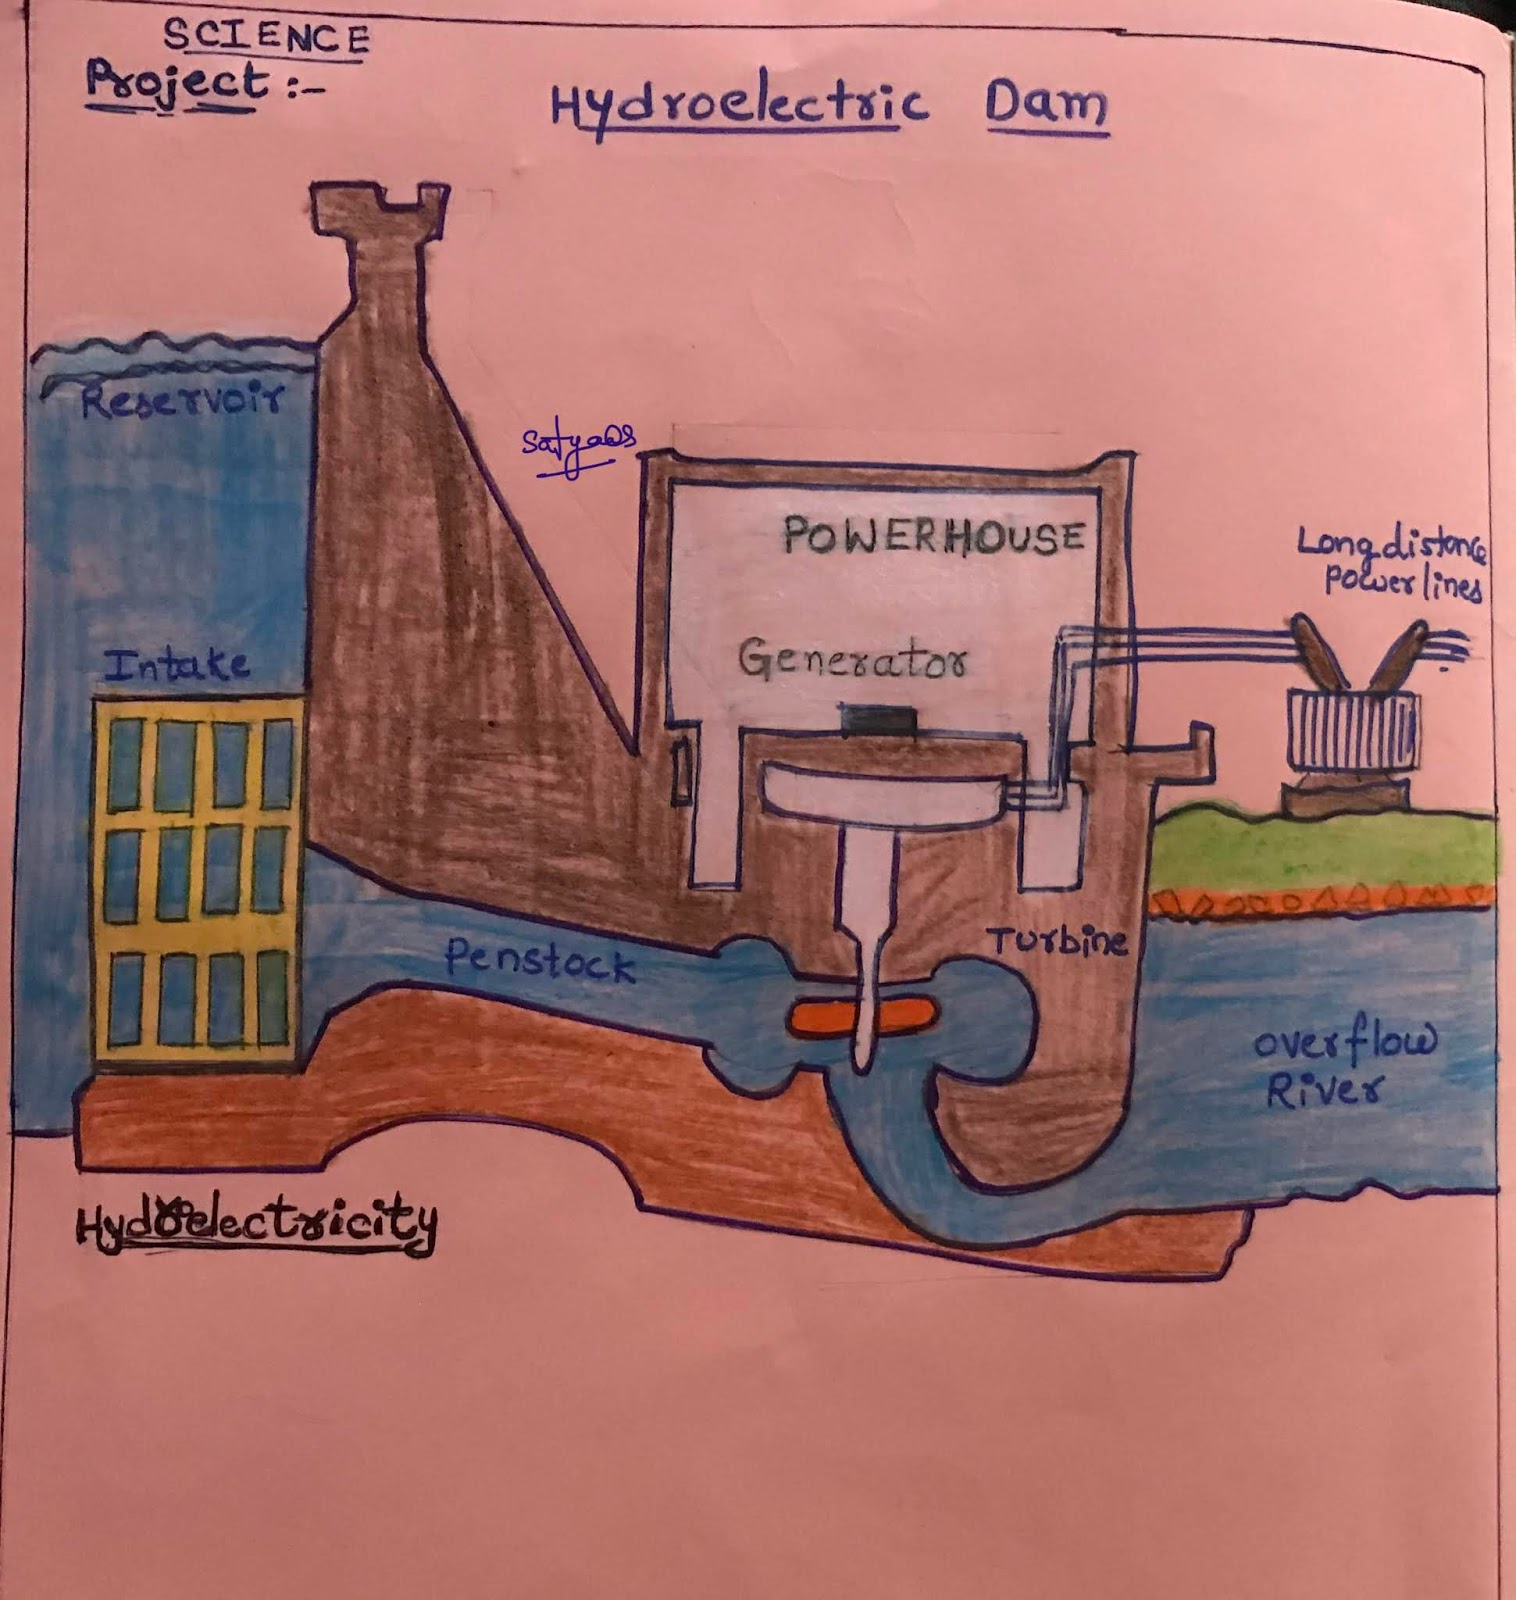 SCIENCE
Project :-
Hydroelectric Dam
Reservoir
POWERHOUSE
Long distance
power lines
Intake
Generator
Penstock
Turbine
overflow
River
Hydroelectricity